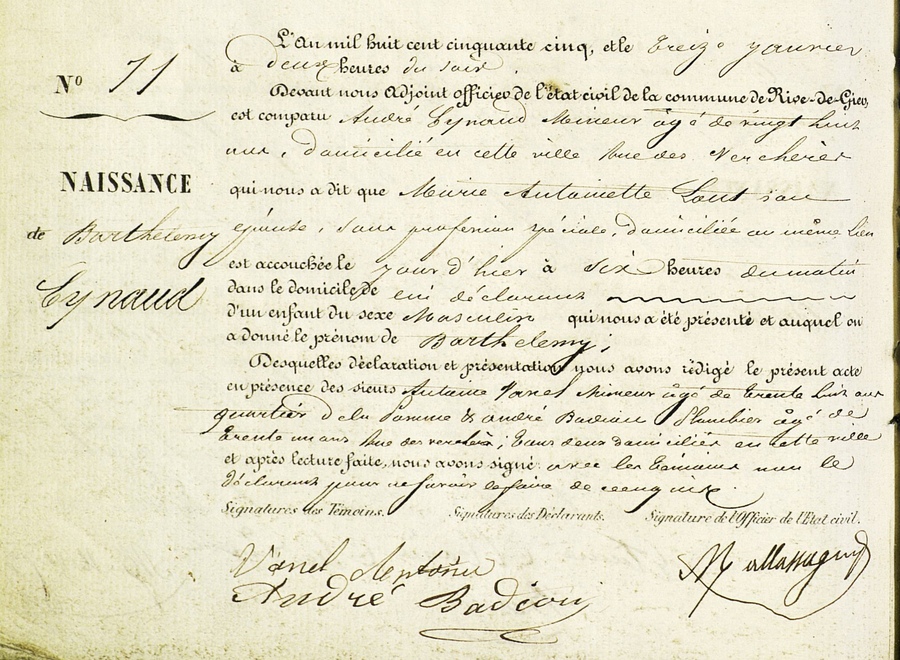 N° 71
NAISSANCE
de Barthelemy
Eynaud
L'An mil huit cent cinquante cinq, et le treize janvier
à deux heures du soir
Devant nous Adjoint officier de l'état civil de la commune de Rive-de-Gier,
est comparu André Eynaud Mineur âgé de vingt huit
ans, domicilié en cette ville rue des Verchères
qui nous a dit que Marie Antoinette son
épouse, sans profession spéciale, domiciliée au même lieu
est accouchée le jour d'hier à six heures du matin
dans le domicile de lui déclarant
d'un enfant du sexe Masculin qui nous a été présenté et auquel on
a donné le prénom de Barthelemy;
Desquelles déclaration et présentation nous avons rédigé le présent acte
en présence des sieurs Antoine Vanel Mineur âgé de trente huit ans
quartier de la & andré Badiou âgé de
trente un ans rue des verchères; tous deux domiciliés en cette ville
et après lecture faite, nous avons signé avec les témoins non le
déclarant pour ne savoir de ce enquis.
Signatures des Témoins. Signatures des Déclarants. Signature de l'Officier de l'Etat civil.
Vanel Antoine
André Badiou